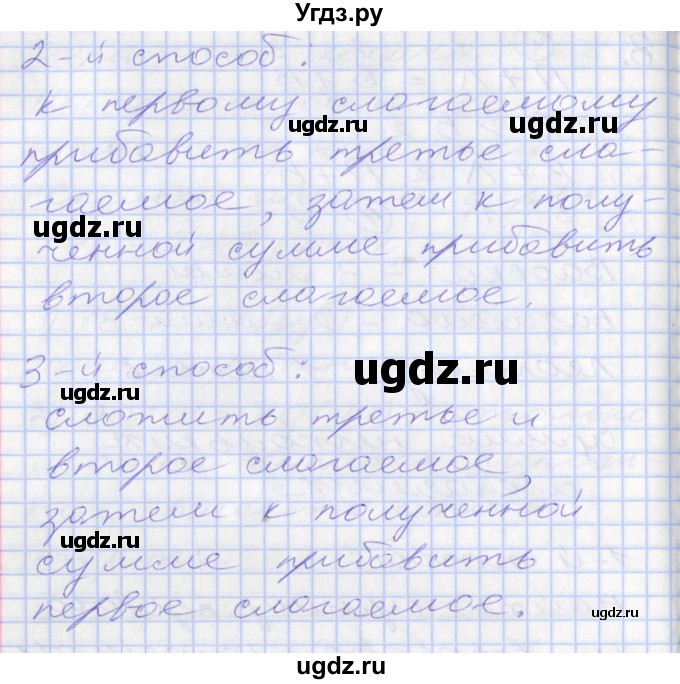 Угдз.ру
2-й способ:
к первому слагаемому
прибавить третье сла-
гаемое, затем к полу-
ченной сумме прибавить
второе слагаемое.
3-й способ:
сложить третье и
второе слагаемое,
затем к полученной
сумме прибавить
первое слагаемое.
ugdz.ru
ugdz.ru
ugdz.ru
ugdz.ru
ugdz.ru
ugdz.ru
ugdz.ru
ugdz.ru
ugdz.ru
ugdz.ru